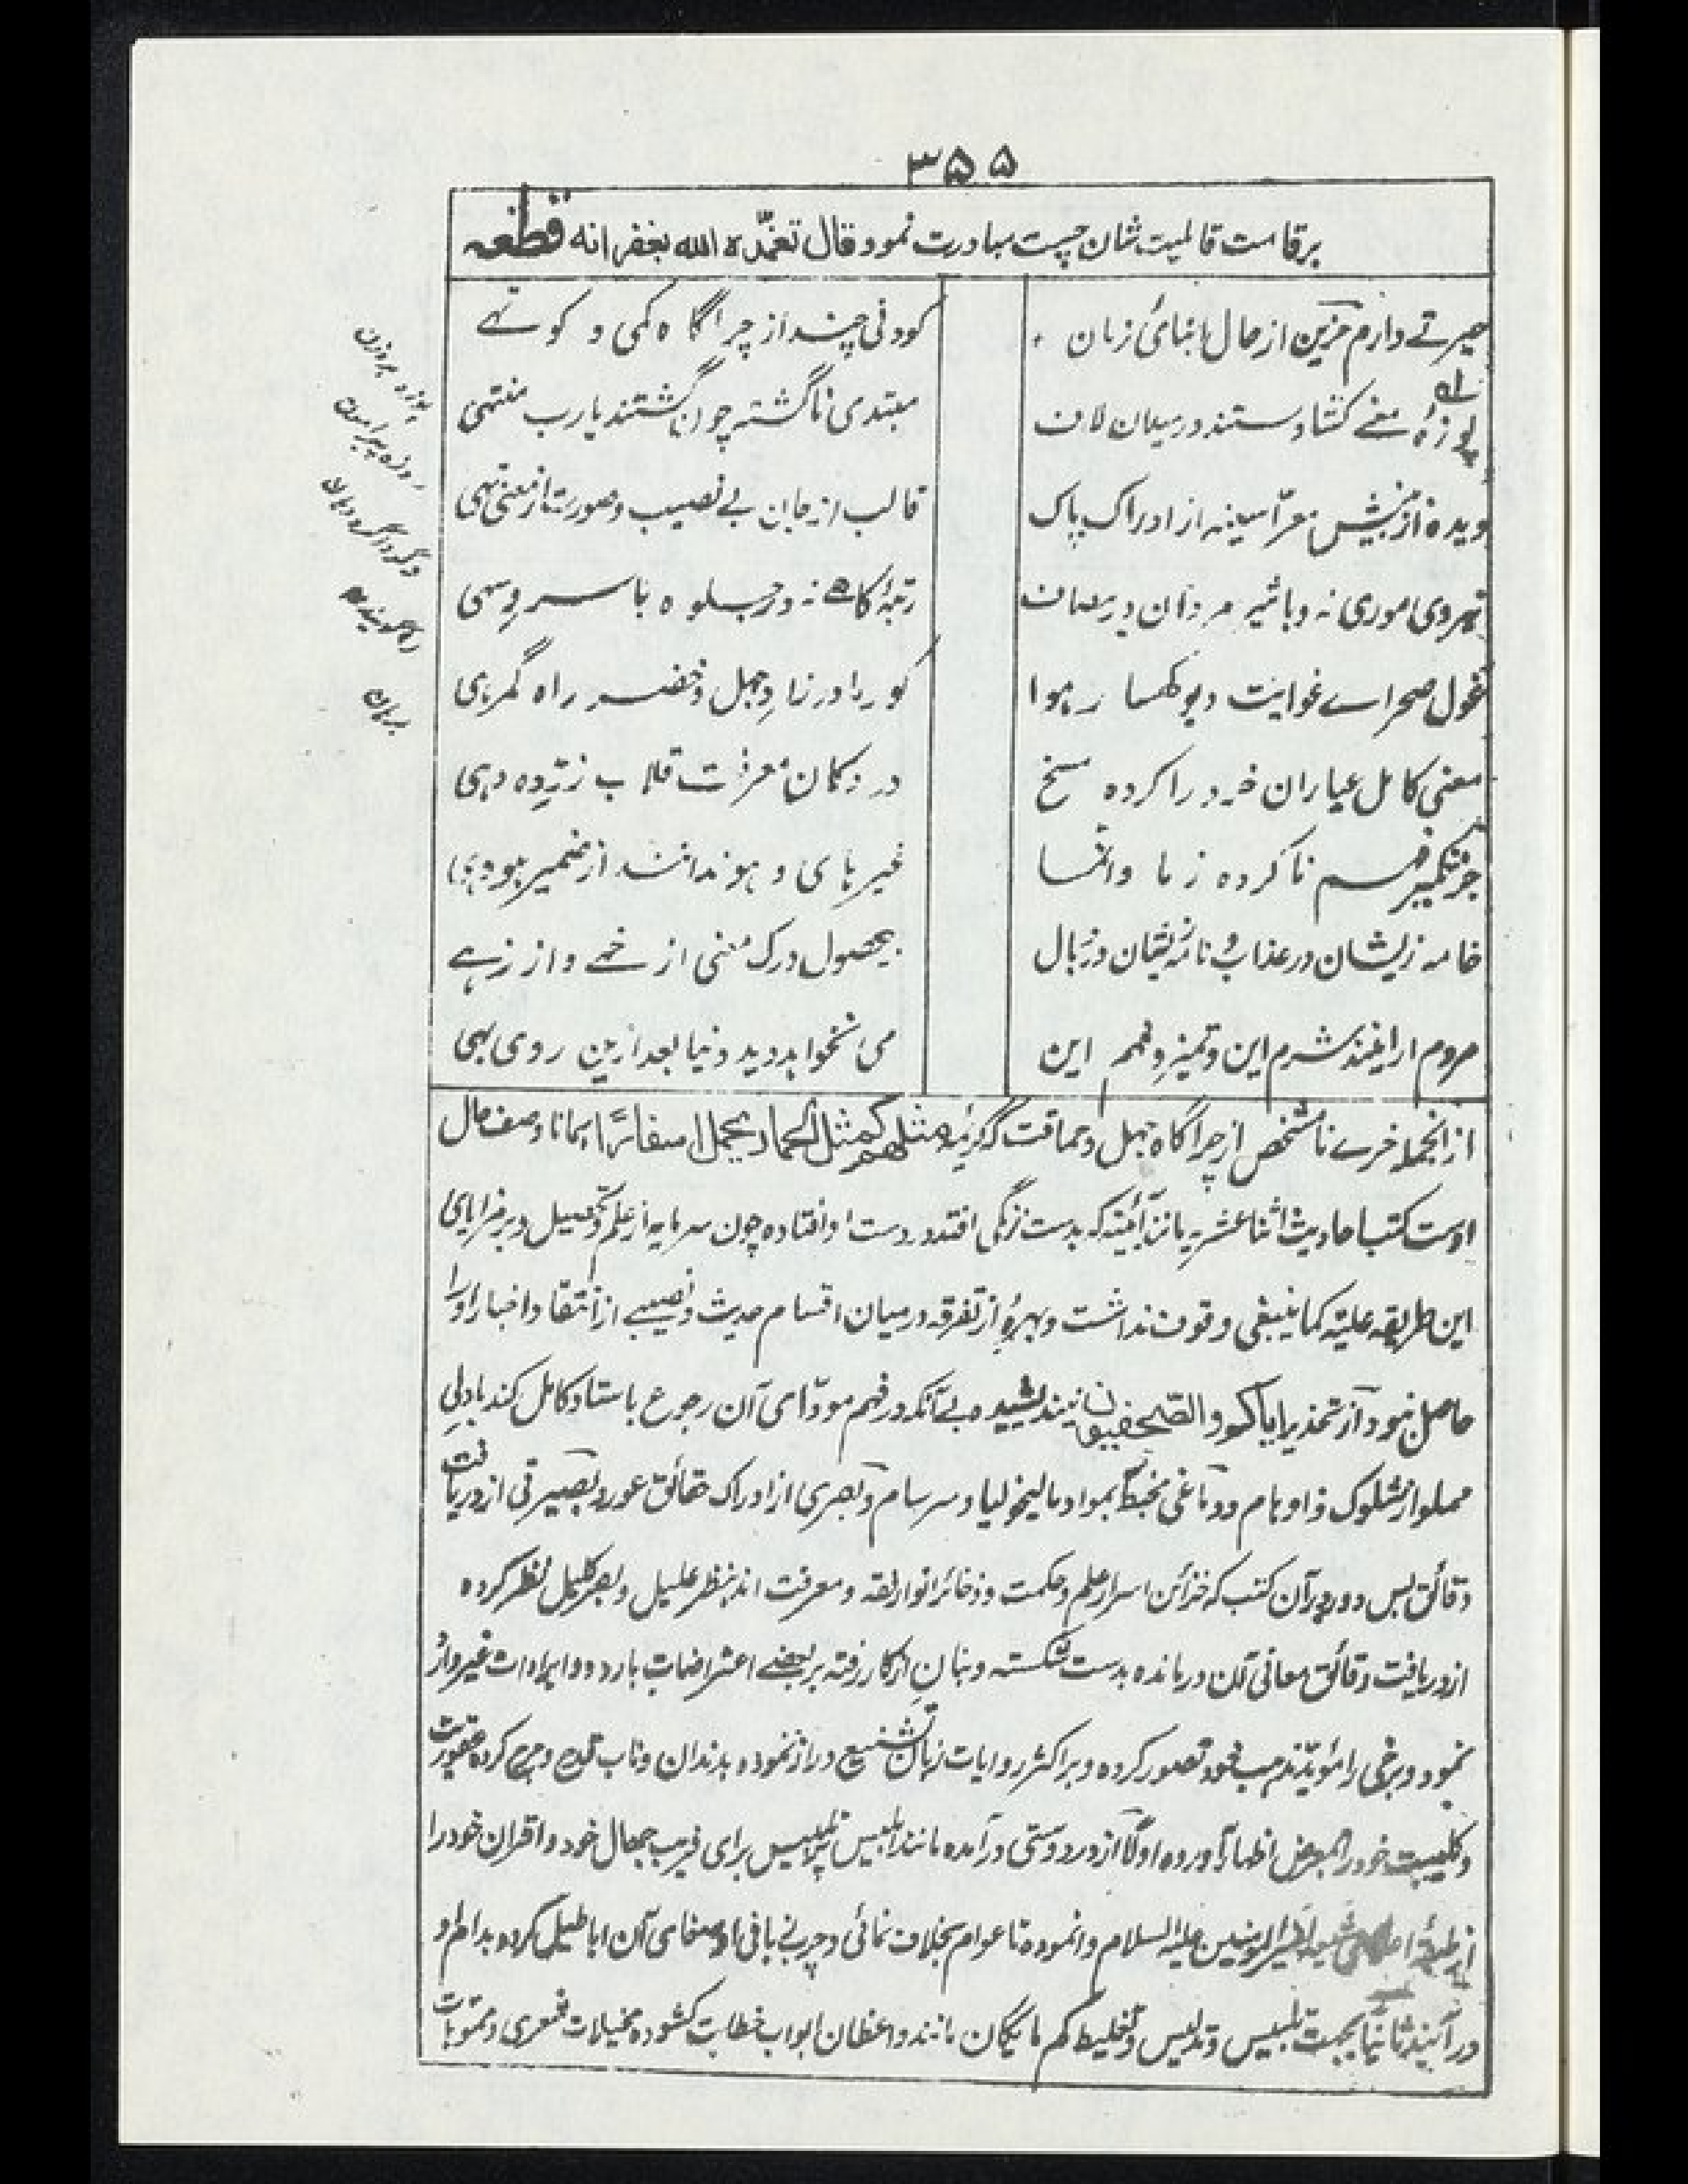 ۳۵۵
برقامت قابلیت شان چست مبادرت نمود قال تغمّده الله بغفرانه قطعه
حیرتے دارم حزین از حال ابنائ زمان
کودنی چند از چراگاه کمی و کوتهے
پوزهٔ معنے کشادستند در میدان لاف
مبتدی ناگشته چون گشتند یارب منتهی
دیده از بینش معرّا سینه از ادراک پاک
قالب از جان بے نصیب و صورت از معنی تهی
موری نه و باشیر مردان در مصاف
رتبهٔ کاهے نه در جلوه با سرو سهی
غول صحراے غوایت دیو کهسار هوا
کوره را در زاد جهل و خضر راه گمرهی
معنی کامل عیاران خرد را کرده مسخ
در دکان معرفت قلاب زرّ ده دهی
جز فهم ناکرده ز ما و انّما
غیر های و هو ندانند از ضمیر
خامه زیشان در عذاب و نامه زیشان در وبال
بیحصول درک معنی از خهے و از زهے
مردم ار اینند شرم این و تمیز و فهم این
می نخواهد دید دنیا بعد ازین روی بهی
از انجمله خرے نامشخص از چراگاه جهل و حماقت که کریمه مثلهم کمثل الحمار یحمل اسفارًا همانا وصف حال
اوست کتب احادیث اثنا عشریه مانند آئینه که بدست زنگی افتد در دست او افتاده چون سرمایه از علم و تحصیل و بر مزایای
این طریقه علیّه کما ینبغی وقوف نداشت و بهرهٔ از تفرقه درمیان اقسام حدیث و نصیبے از انتقاد اخبار او را
حاصل نبود از تحذیر ایاکم والصّحفیین نیندیشیده بے آنکه در فهم مودّای آن رجوع باستاد کامل کند با دلی
مملو از شکوک و اوهام و دماغی مخبط بمواد مالیخولیا و سرسام و بصری از ادراک حقائق عور و بصیرتی از دریافت
دقائق بس دور در آن کتب که خزائن اسرار علم و حکمت و ذخائر انوار فقه و معرفت اند بنظر علیل و بصر کلیل نظر کرده
از دریافت دقائق معانی آن درمانده بدست شکسته و بنان از کار رفته بر بعضے اعتراضات بارده و ایرادات غیر وارد
نمود و برخی را مؤیّد مذهب خود تصور کرده و بر اکثر روایات زبان تشنیع دراز نموده بدندان و ناب قدح و جرح کرده عقوریت
و کلبیت خود را بمعرض اظهار آورده اولاً از در دوستی در آمده مانند ابلیس پر تلبیس برای فریب جهال خود و اقران خود را
از امیرالمؤمنین علیه السلام وانموده تا عوام بخلاف نمائی و چرب بافی او باصغای آن اباطیل کرده بدام او
در آیند ثانیاً بجهت تلبیس و تدلیس و تخلیط کم مایگان مانند واعظان ابواب خطابت کشوده مخیلات شعری و تمویهات
پوزه بروزن
روزه پیرامون
و گرداگرد دهان
را گویند
برهان